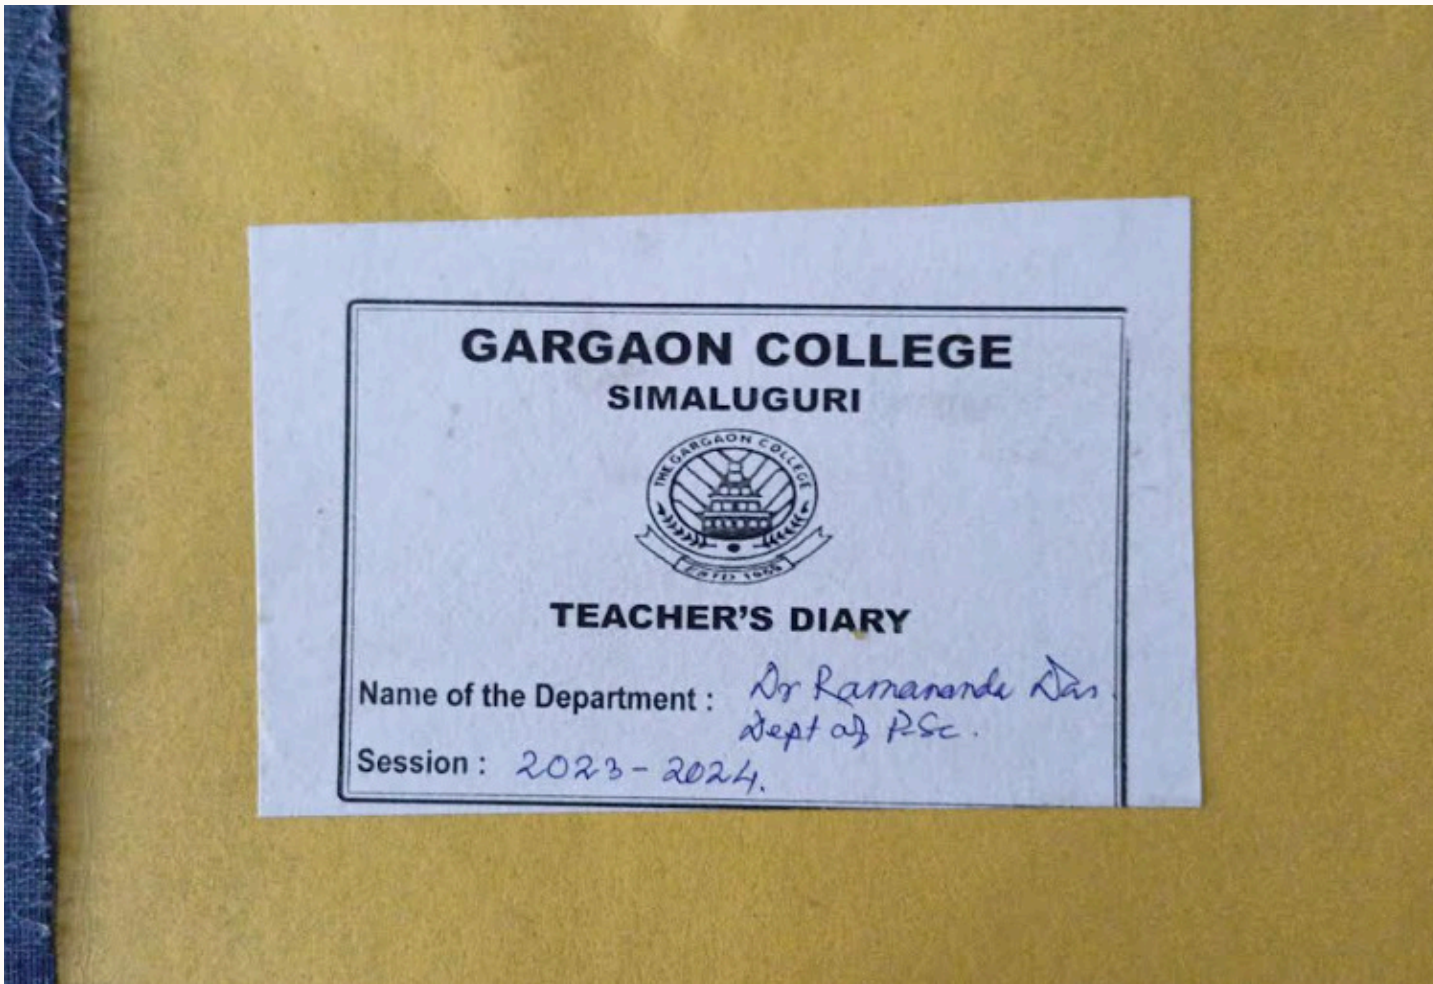 GARGAON COLLEGE
SIMALUGURI
THE GARGAON COLLEGE
ESTD 1959
TEACHER'S DIARY
Name of the Department : Dr Ramananda Das
Dept of P.Sc.
Session : 2023-2024.